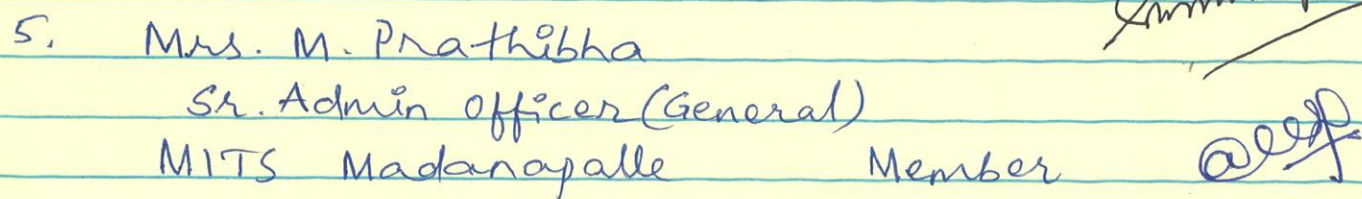 5. Mrs. M. Prathibha
Sr. Admin Officer (General)
MITS Madanapalle Member